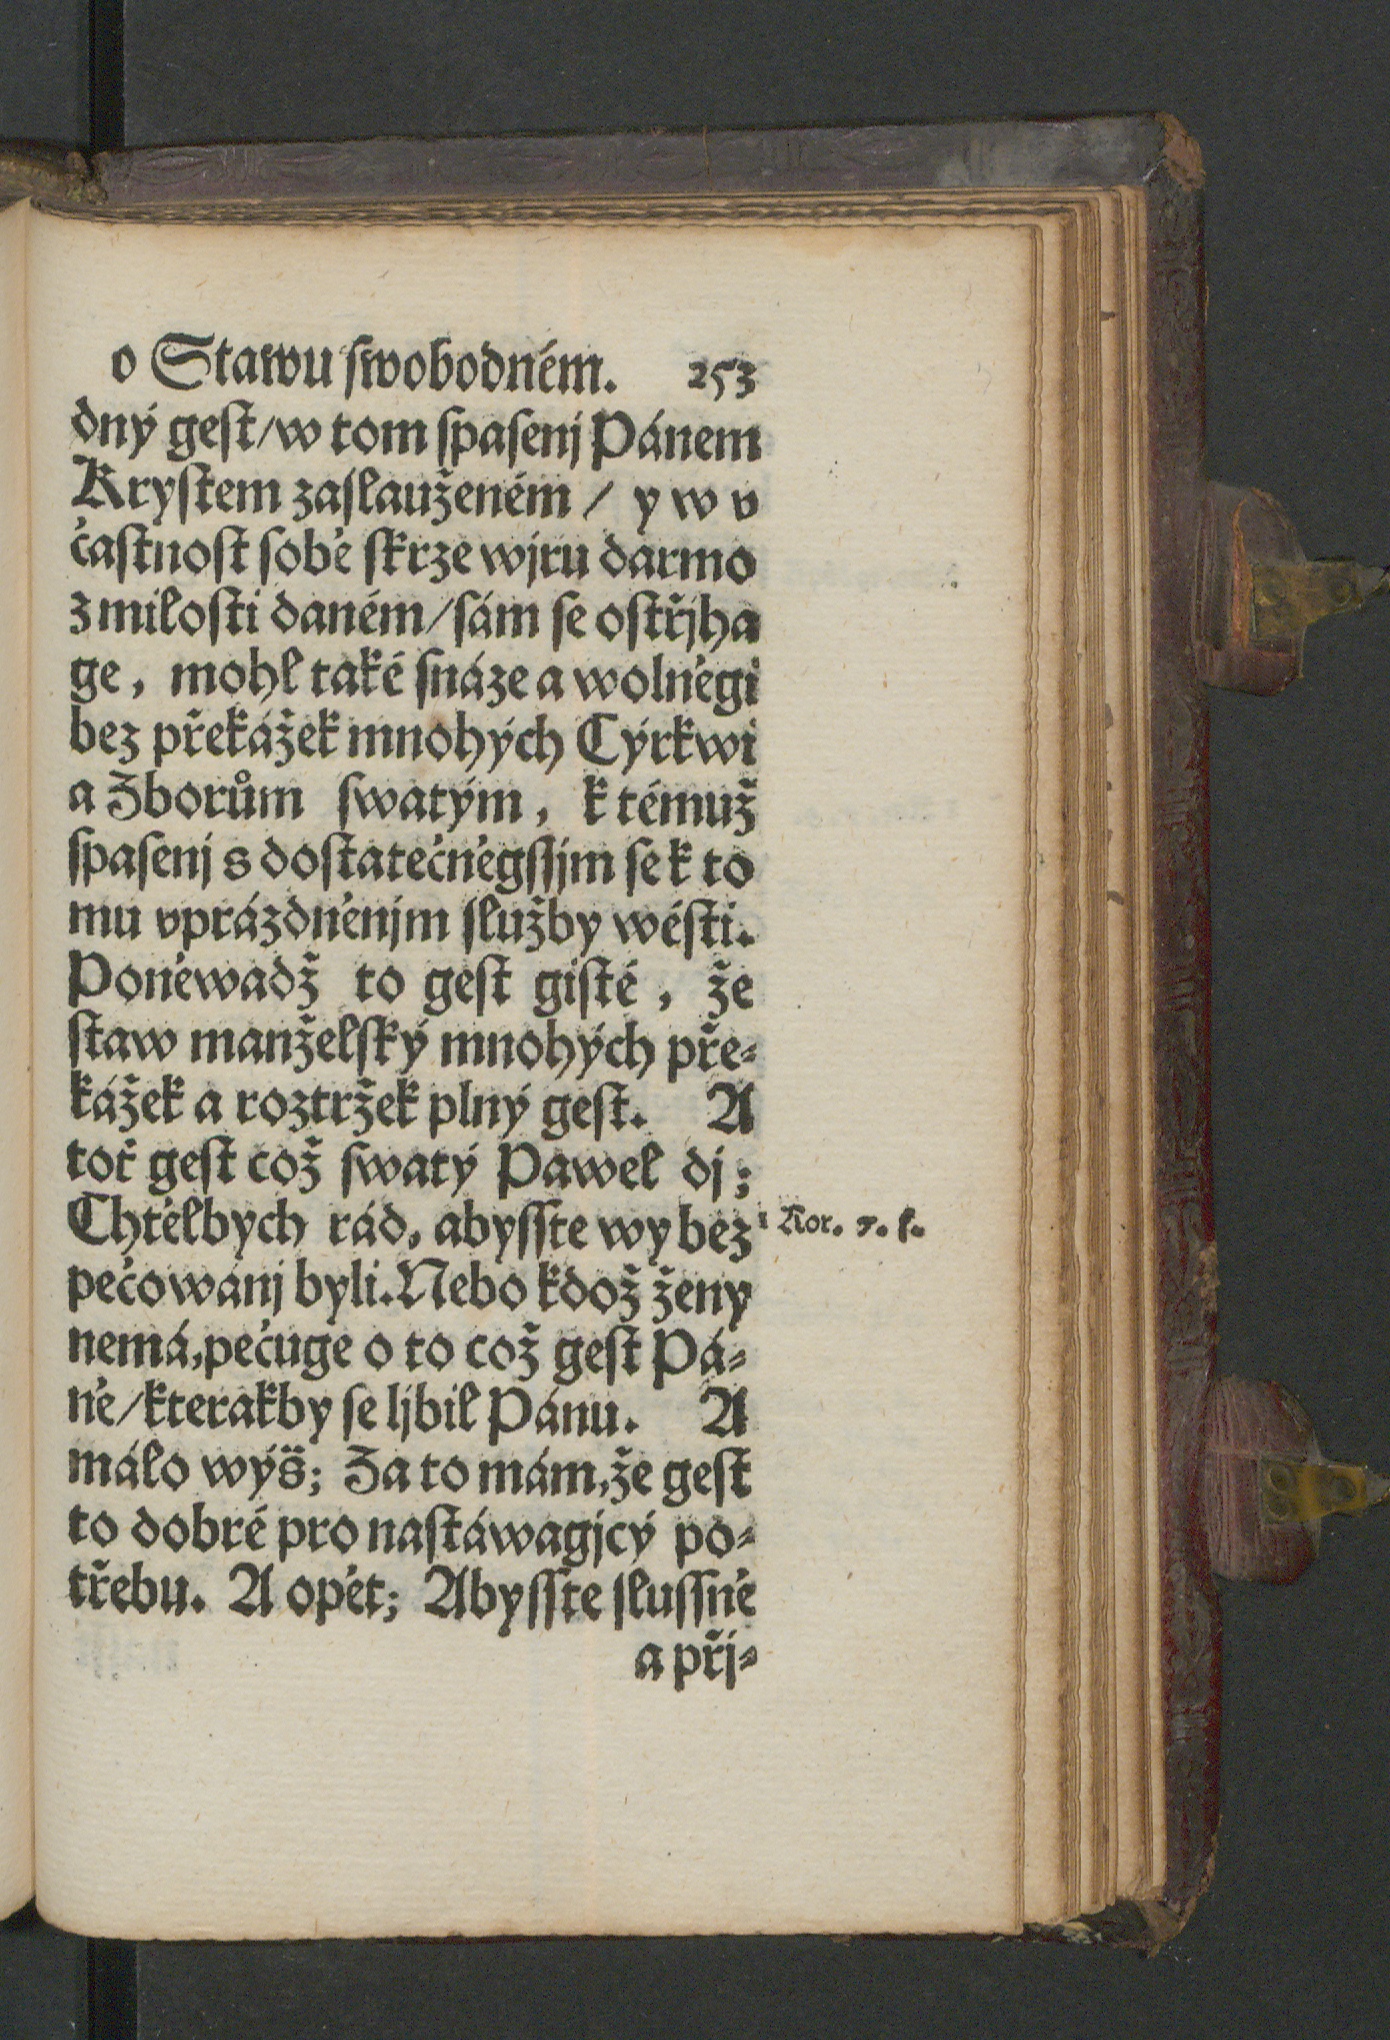 o Stawu ſwobodném. 253
dný geſt/w tom ſpaſenj Pánem
Kryſtem zaſlauženém / y w v
častnoſt ſobě ſkrze wjru darmo
z miloſti daném/ſám ſe oſtřjha
ge, mohl také ſnáze a wolněgi
bez překážek mnohých Cýrkwi
a Zborům ſwatým, k témuž
ſpaſenj s doſtatečněgſſjm ſe k to
mu vprázdněnjm ſlužby wéſti.
Poněwadž to geſt giſté, že
ſtaw manželſký mnohých pře⸗
kážek a roztržek plný geſt. A
toť geſt což ſwatý Pawel dj;
Chtělbych rád, abyſſte wy bez
1 Kor. 7. f.
pečowánj byli. Nebo kdož ženy
nemá, pečuge o to což geſt Pá⸗
ně/kterakby ſe ljbil Pánu. A
málo wýš; Za to mám, že geſt
to dobré pro naſtáwagjcý po⸗
třebu. A opět; Abyſſte ſluſſně
a při⸗